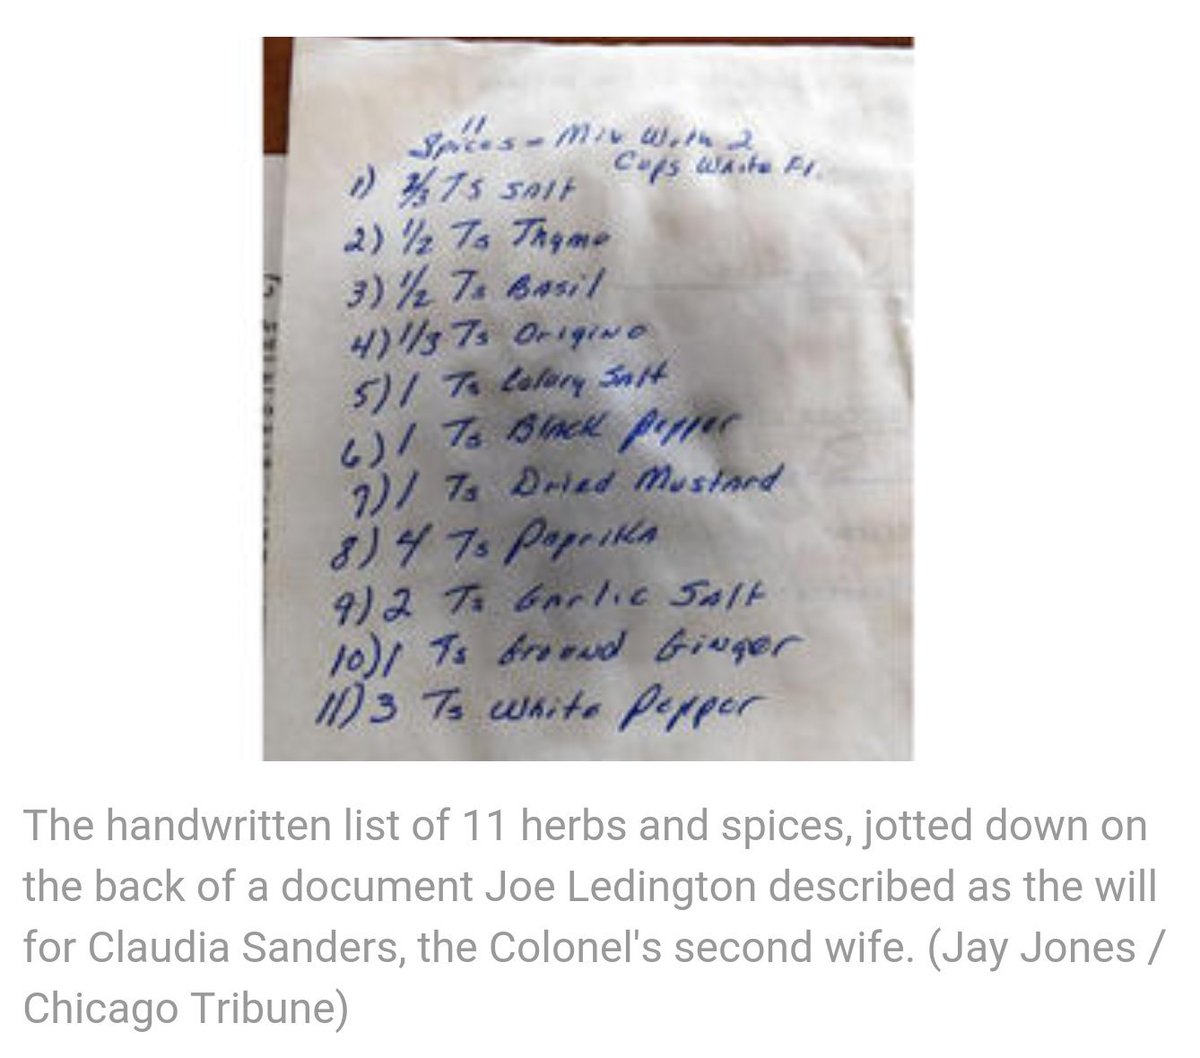 11
Spices - Mix With 2
Cups White Fl.
1) 2/3 Ts Salt
2) 1/2 Ts Thyme
3) 1/2 Ts Basil
4) 1/3 Ts Origino
5) 1 Ts Celary Salt
6) 1 Ts Black Pepper
7) 1 Ts Dried Mustard
8) 4 Ts Paprika
9) 2 Ts Garlic Salt
10) 1 Ts Ground Ginger
11) 3 Ts White Pepper
The handwritten list of 11 herbs and spices, jotted down on
the back of a document Joe Ledington described as the will
for Claudia Sanders, the Colonel's second wife. (Jay Jones /
Chicago Tribune)